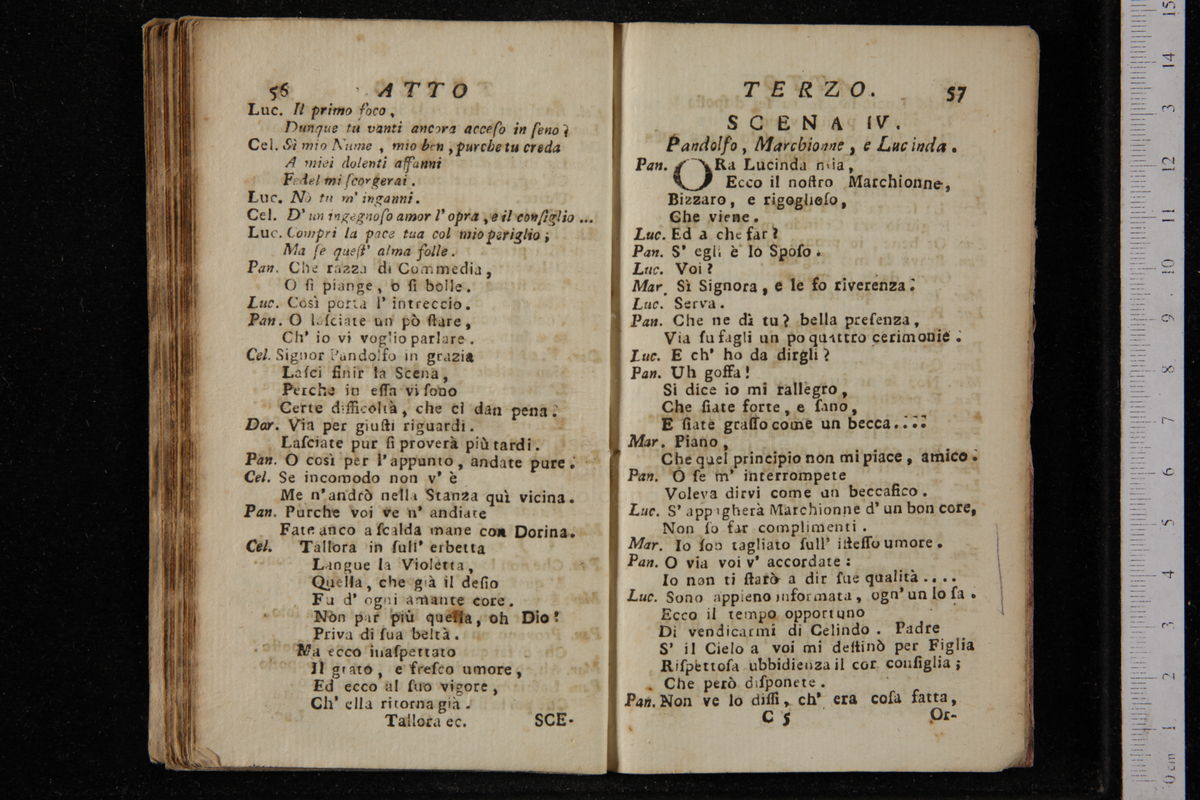 56 ATTO
Luc. Il primo foco,
Dunque tu vanti ancora acceſo in ſeno?
Cel. Sì mio Nume, mio ben, purche tu creda
A miei dolenti affanni
Fedel mi ſcorgerai.
Luc. Nò tu m' inganni.
Cel. D' un ingegnoſo amor l' opra, e il conſiglio ...
Luc. Compri la pace tua col mio periglio;
Ma ſe queſt' alma folle.
Pan. Che razza di Commedia,
O ſi piange, o ſi bolle.
Luc. Così porta l' intreccio.
Pan. O laſciate un pò ſtare,
Ch' io vi voglio parlare.
Cel. Signor Pandolfo in grazia
Laſci finir la Scena,
Perche in eſſa vi ſono
Certe difficoltà, che ci dan pena.
Dor. Via per giuſti riguardi.
Laſciate pur ſi proverà più tardi.
Pan. O così per l' appunto, andate pure.
Cel. Se incomodo non v' è
Me n' andrò nella Stanza quì vicina.
Pan. Purche voi ve n' andiate
Fate anco a ſcalda mane con Dorina.
Cel. Tallora in ſull' erbetta
Langue la Violetta,
Quella, che già il deſio
Fu d' ogni amante core.
Non par più queſſa, oh Dio!
Priva di ſua beltà.
Ma ecco inaſpettato
Il grato, e freſco umore,
Ed ecco al ſuo vigore,
Ch' ella ritorna già.
Tallora ec. SCE-
TERZO. 57
SCENA IV.
Pandolfo, Marchionne, e Lucinda.
Pan. ORa Lucinda mia,
Ecco il noſtro Marchionne,
Bizzaro, e rigoglioſo,
Che viene.
Luc. Ed a che far?
Pan. S' egli è lo Spoſo.
Luc. Voi?
Mar. Sì Signora, e le fo riverenza.
Luc. Serva.
Pan. Che ne dì tu? bella preſenza,
Via fu fagli un po quattro cerimonie.
Luc. E ch' ho da dirgli?
Pan. Uh goffa!
Si dice io mi rallegro,
Che ſiate forte, e ſano,
E ſiate graſſo come un becca....
Mar. Piano,
Che quel principio non mi piace, amico.
Pan. O ſe m' interrompete
Voleva dirvi come un beccafico.
Luc. S' appigherà Marchionne d' un bon core,
Non ſo far complimenti.
Mar. Io ſon tagliato ſull' iſteſſo umore.
Pan. O via voi v' accordate:
Io non ti ſtarò a dir ſue qualità....
Luc. Sono appieno informata, ogn' un lo ſa.
Ecco il tempo opportuno
Di vendicarmi di Celindo. Padre
S' il Cielo a voi mi deſtinò per Figlia
Riſpettoſa ubbidienza il cor conſiglia;
Che però diſponete.
Pan. Non ve lo diſſi, ch' era coſa fatta,
C 5 Or-
0 cm 1 2 3 4 5 6 7 8 9 10 11 12 13 14 15